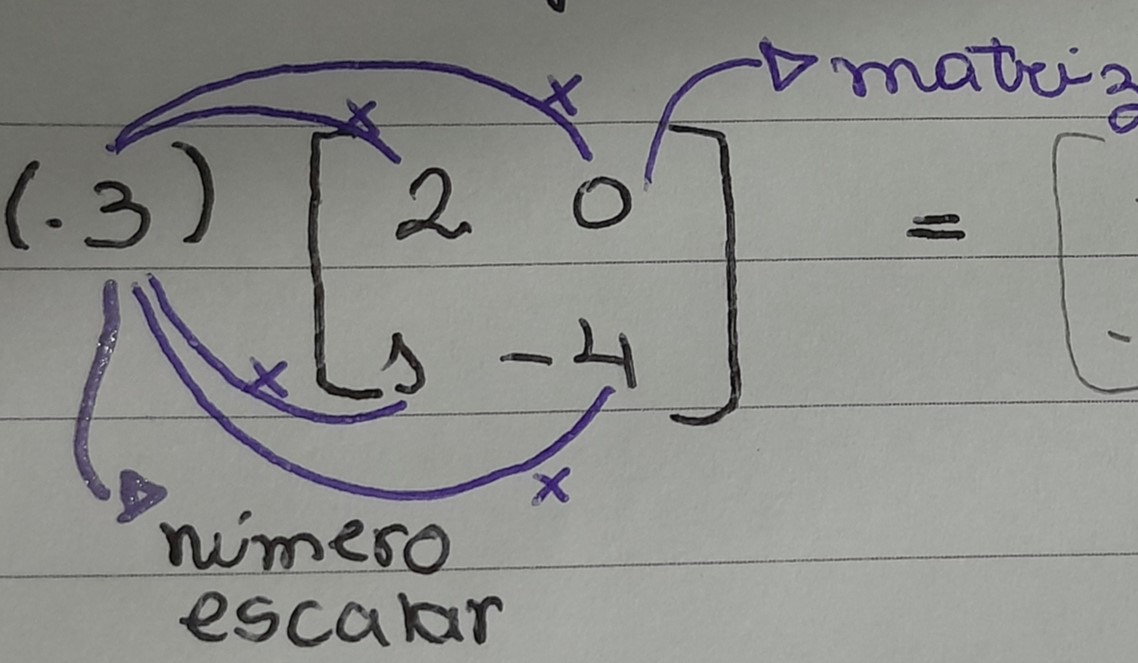 matriz
(-3) [ 2 0 ] = [
[ 1 -4 ] -
número
escalar